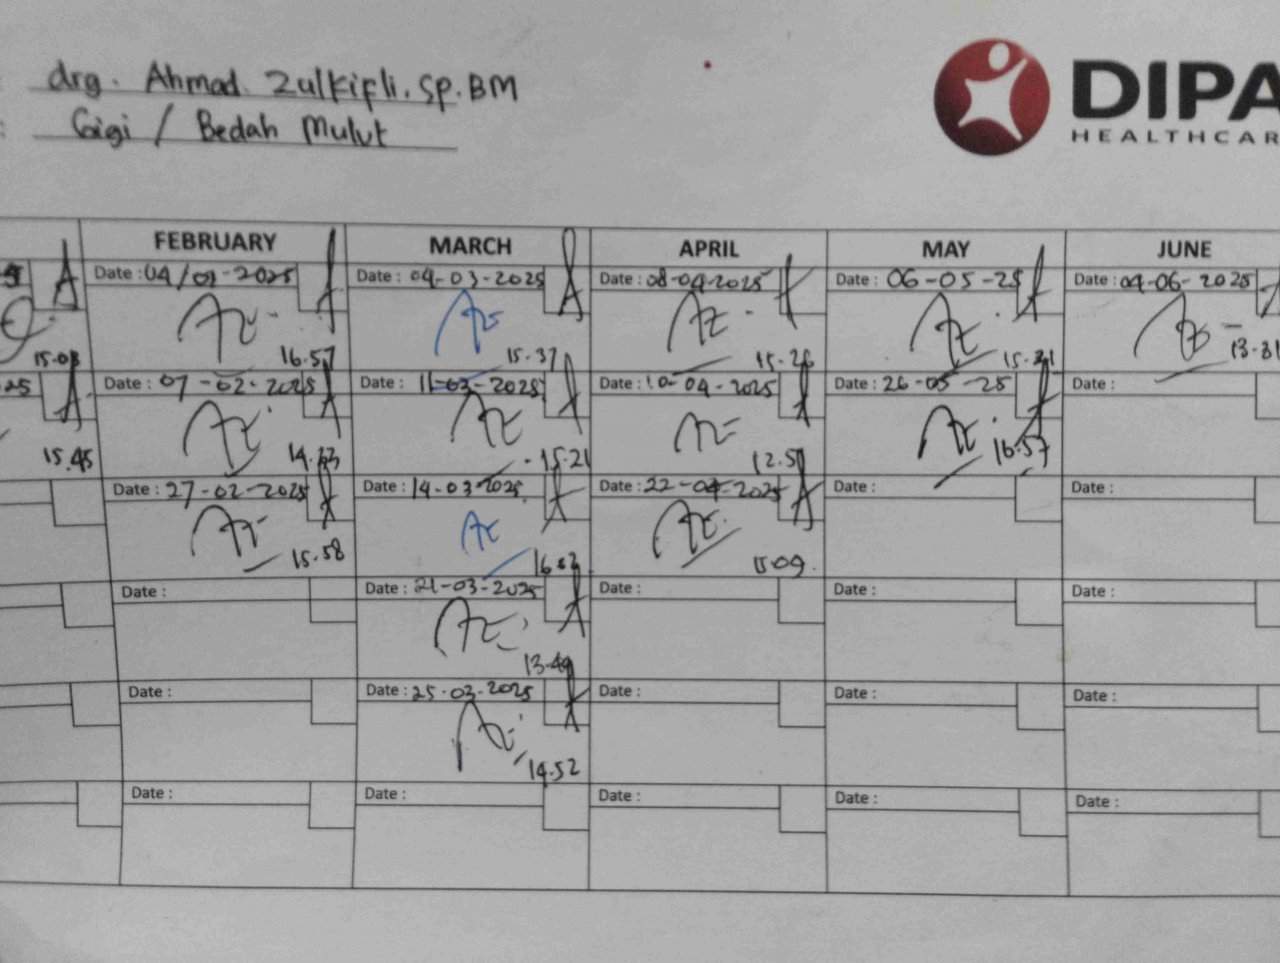 : drg. Ahmad Zulkifli. Sp. BM
: Gigi / Bedah Mulut
DIPA
HEALTHCAR
FEBRUARY MARCH APRIL MAY JUNE
Date : 04/02-2025 Date : 04-03-2025 Date : 08-04-2025 Date : 06-05-25 Date : 04-06-2025
15.03 16.57 15.37 15.26 15.31 13.31
25 Date : 07-02-2025 Date : 11-03-2025 Date : 10-04-2025 Date : 26-05-25 Date :
15.45 14.33 15.21 12.51 16.57
Date : 27-02-2025 Date : 14-03-2025 Date : 22-04-2025 Date : Date :
15.58 16.02 15.09
Date : Date : 21-03-2025 Date : Date : Date :
13.49
Date : Date : 25-03-2025 Date : Date : Date :
14.52
Date : Date : Date : Date : Date :